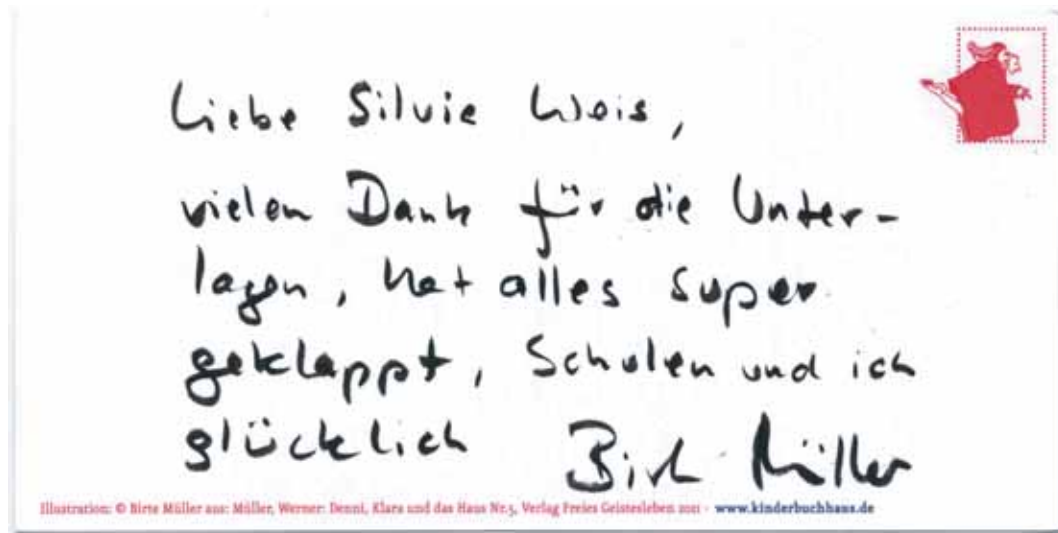 Liebe Silvie Weis,
vielen Dank für die Unter-
lagen, hat alles super
geklappt, Schulen und ich
glücklich Birte Müller
Illustration: © Birte Müller aus: Müller, Werner: Denni, Klara und das Haus Nr.5, Verlag Freies Geistesleben 2011 - www.kinderbuchhaus.de